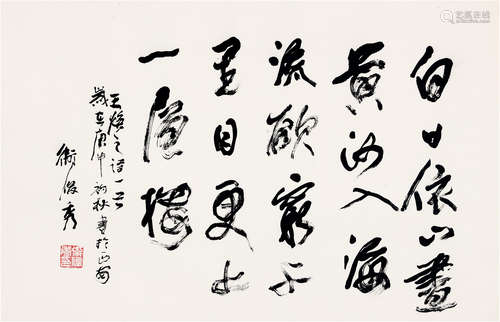 白日依山盡
黄河入海
流欲窮千
里目更上
一層樓
王焕之诗一首
歲在庚午初秋書於西安
衛俊秀